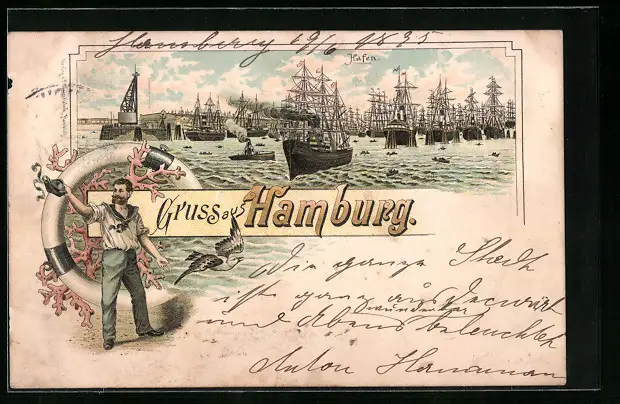 Hamburg 19/6 1895
Hafen.
Gruss aus Hamburg.
Die ganze Stadt
ist ganz aus
wunderbar
und Abends beleuchtet
Anton